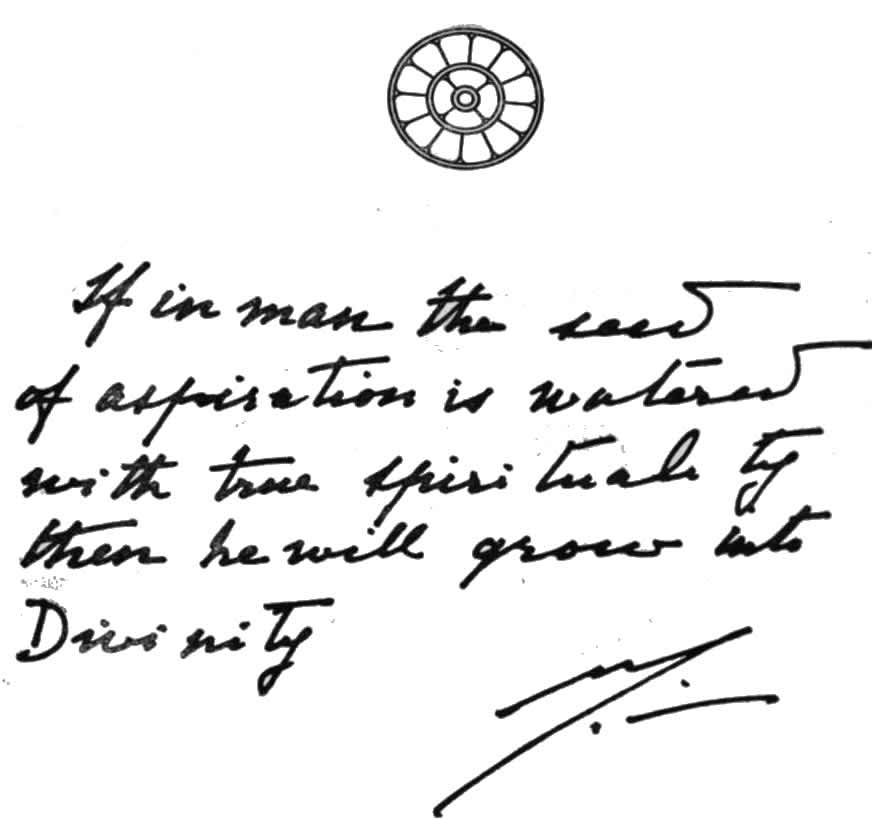 If in man the seed
of aspiration is watered
with true spirituality
then he will grow into
Divinity